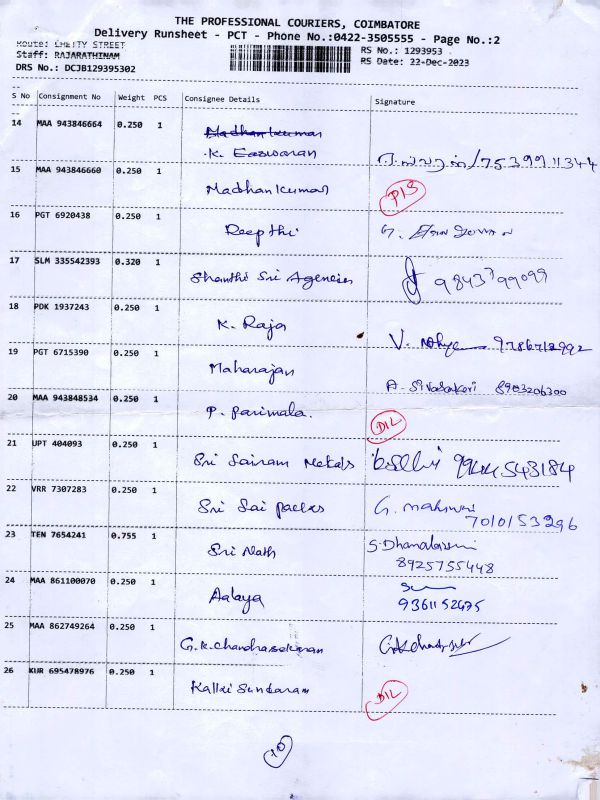 THE PROFESSIONAL COURIERS, COIMBATORE
Delivery Runsheet - PCT - Phone No.:0422-3505555 - Page No.:2
Route: CHETTY STREET
RS No.: 1293953
Staff: RAJARATHINAM
RS Date: 22-Dec-2023
DRS No.: DCJB129395302
S No Consignment No Weight PCS Consignee Details Signature
14 MAA 943846664 0.250 1 Madhankumar
K. Easwaran /7539911344
15 MAA 943846660 0.250 1 Madhankumar
16 PGT 6920438 0.250 1 Reepthi G.
17 SLM 335542393 0.320 1 Shanthi Sri Agencies 9843799099
18 PDK 1937243 0.250 1 K. Raja V. 9786712992
19 PGT 6715390 0.250 1 Maharajan A. Sivasakari 8903206300
20 MAA 943848534 0.250 1 P. Parimala. DIL
21 UPT 404093 0.250 1 Sri Sairam Metals 9944543184
22 VRR 7307283 0.250 1 Sri Sai Packs G.
7010153296
23 TEN 7654241 0.755 1 Sri Nath S. Dhanalaxmi
8925755448
24 MAA 861100070 0.250 1 Aalaya
9361152675
25 MAA 862749264 0.250 1 G.K.Chandrasekaran
26 KUR 695478976 0.250 1 Kallai Sundaram DIL
10